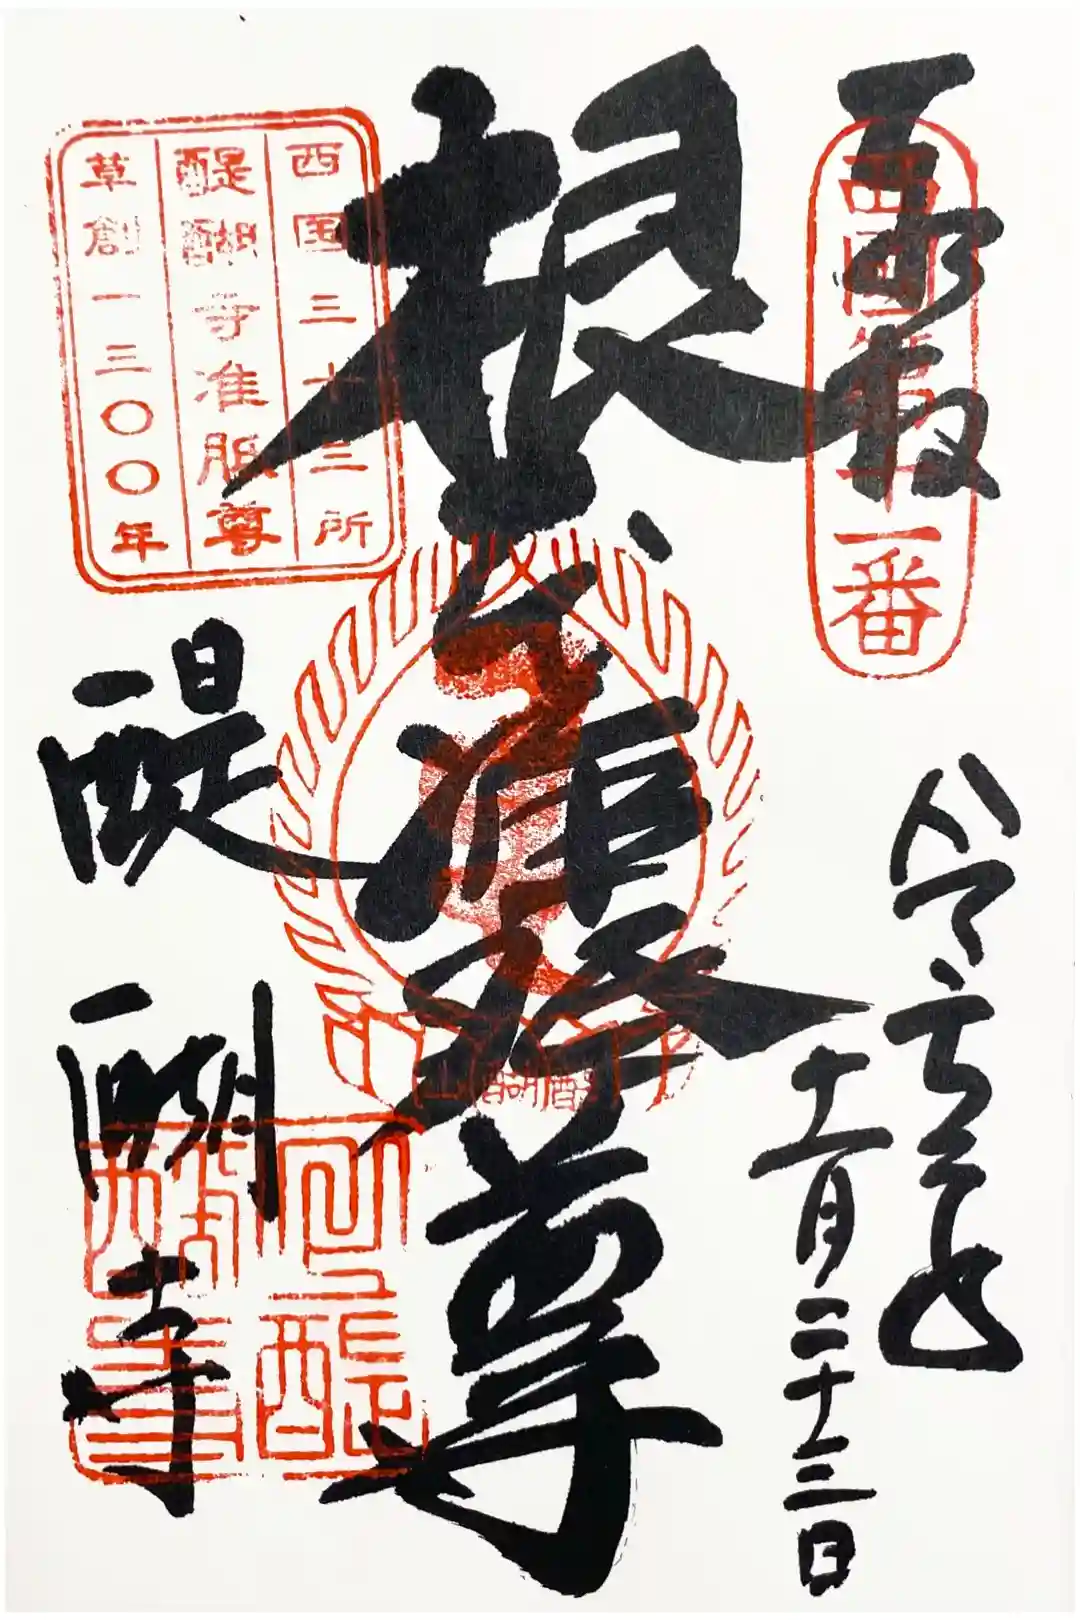 西國第十一番
十一月二十三日
根本准胝尊
醍醐山
西国三十三所
醍醐寺准胝尊
草創一三〇〇年
醍醐寺